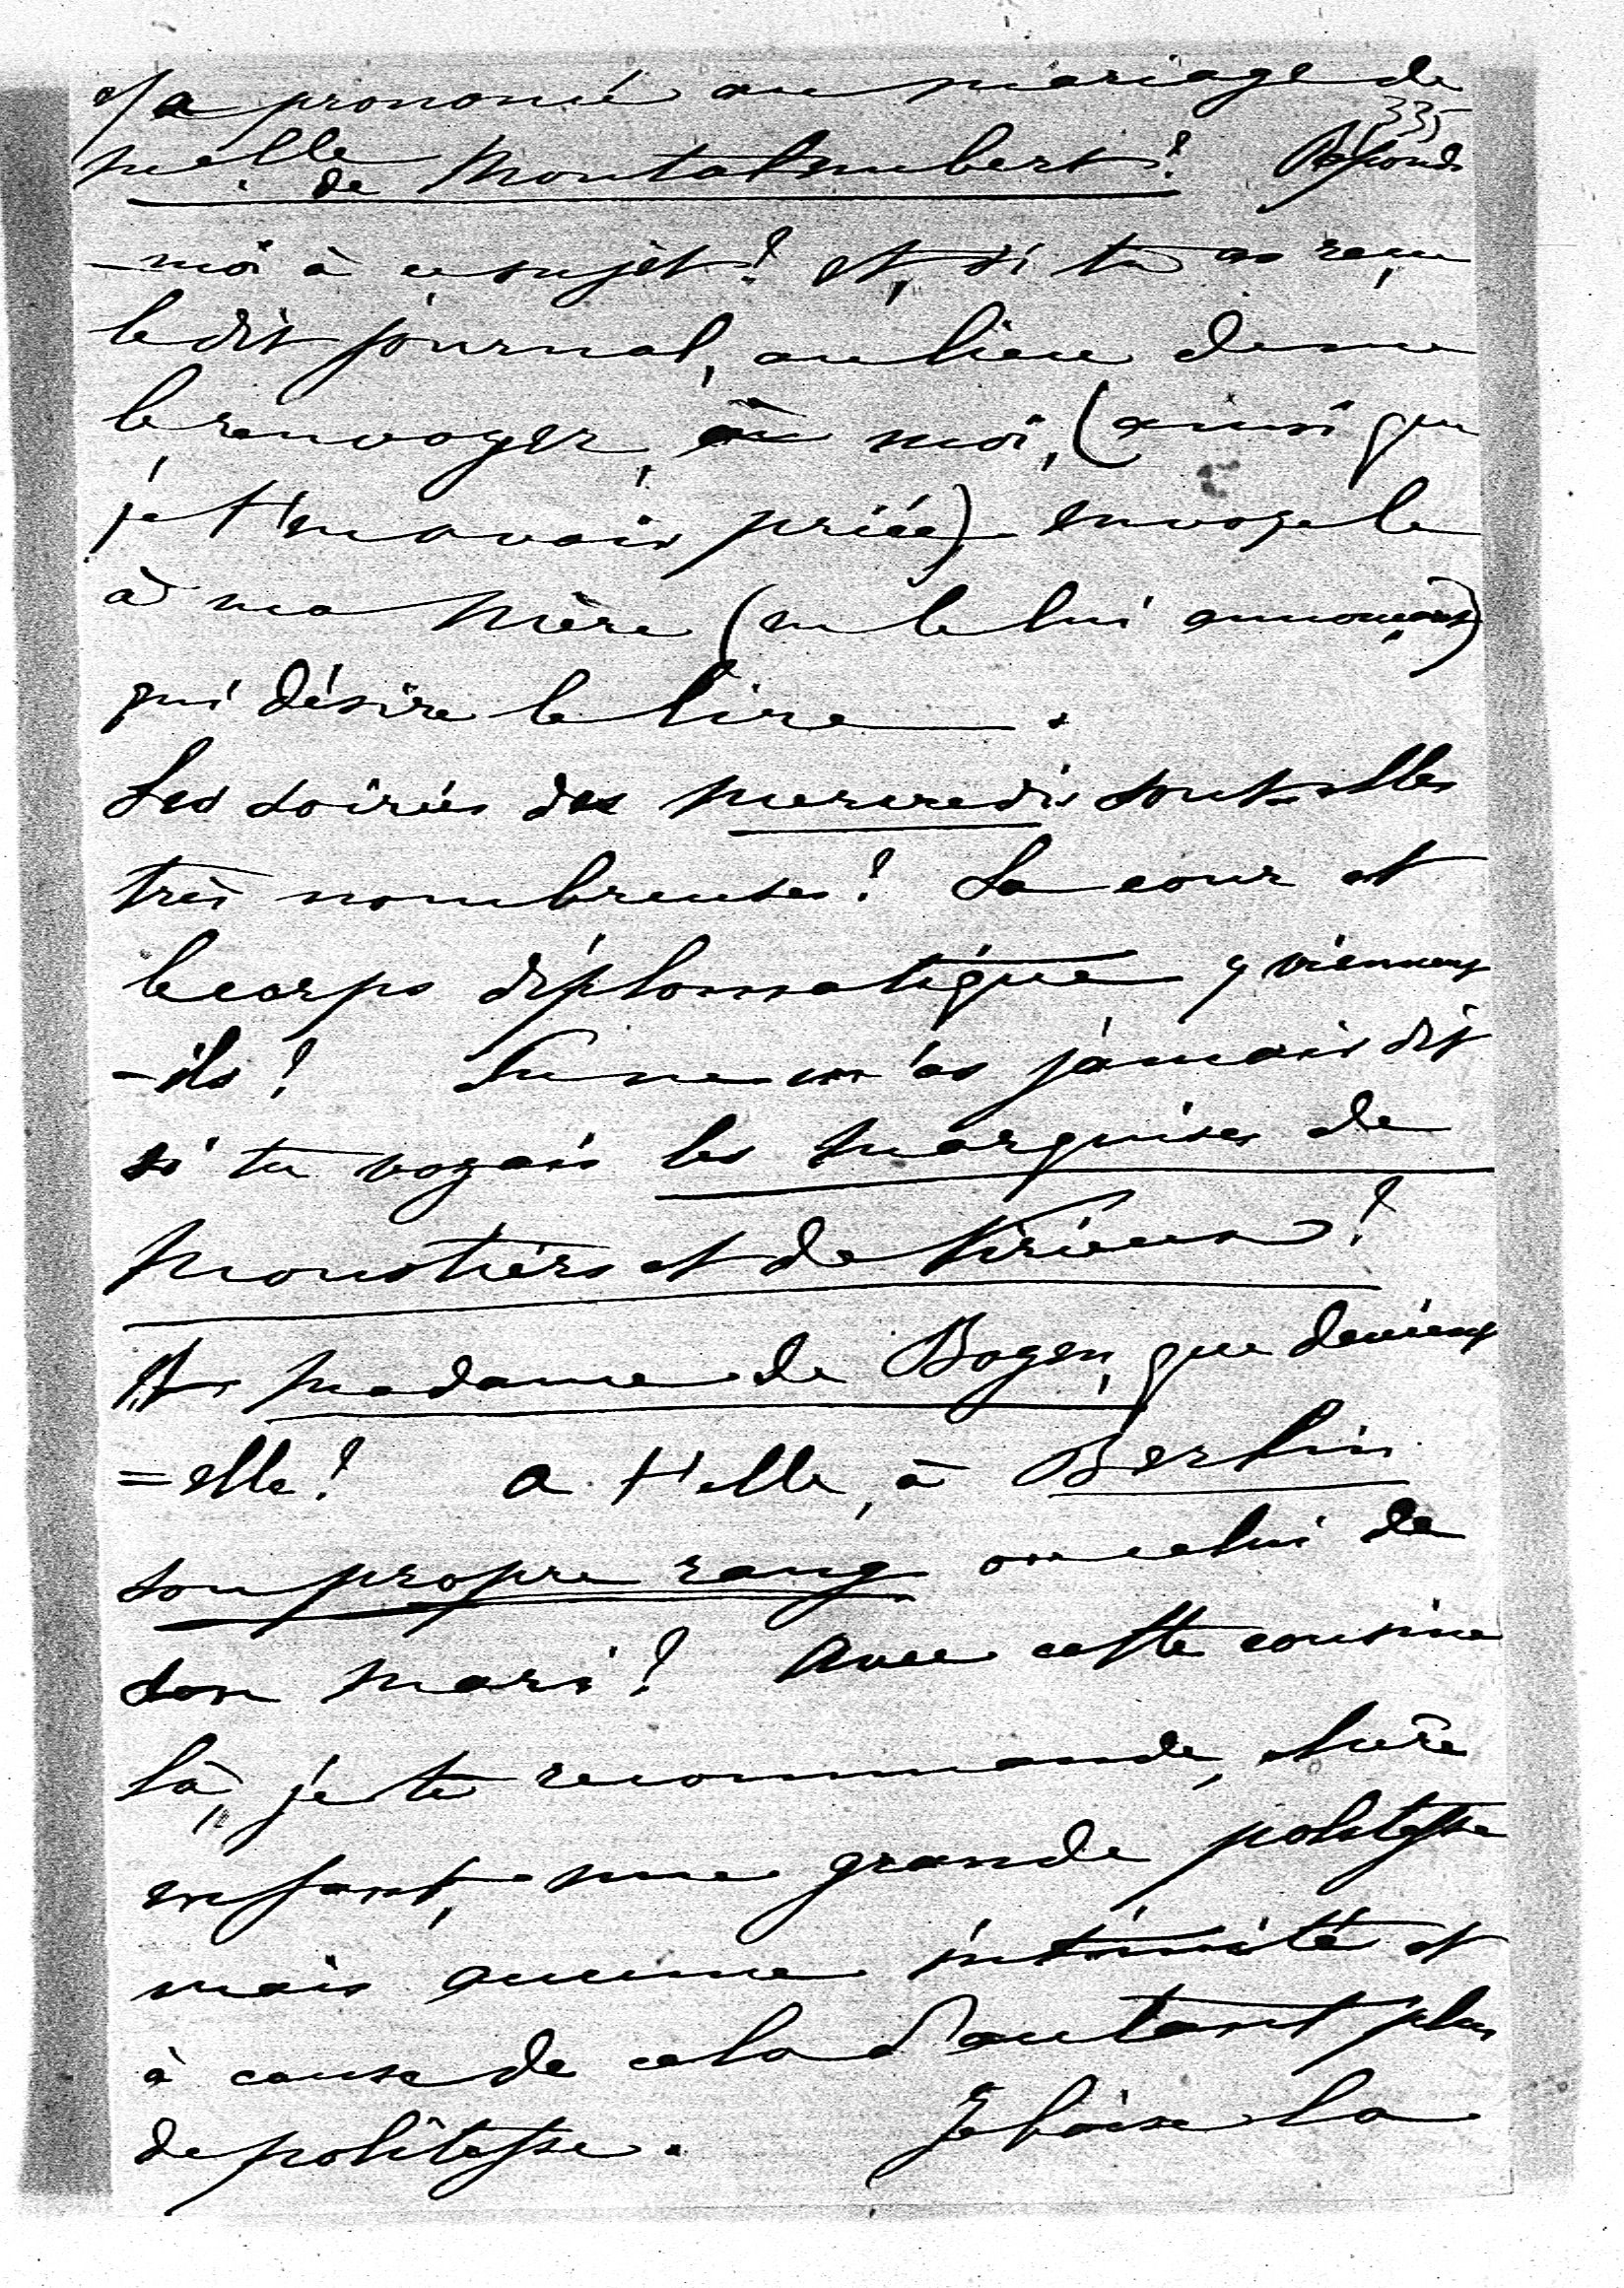 a prononcé au mariage de
335
melle de Montalembert? Réponds
-moi à ce sujet? et, si tu as reçu
le dit journal, au lieu de me
le renvoyer, à moi, (ainsi que
je t'en avais priée) envoye le
à ma Mère (en le lui annonçant)
qui désire le lire.
Les soirées des mercredis sont-elles
très nombreuses? La cour et
le corps diplomatique y viennent
-ils? Tu ne m'as jamais dit
si tu voyais les marquises de
Moustiers et de Virieux?
Et madame de Bogen, que devient
=elle? a t'elle, à Berlin
son propre rang ou celui de
son mari? Avec cette cousine
là, je te recommande, chère
enfant, une grande politesse
mais aucune intimité et
à cause de cela d'autant plus
de politesse. Je baise la